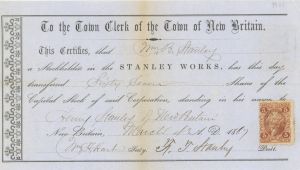 To the Town Clerk of the Town of New Britain.
This Certifies, that Wm B. Stanley
a Stockholder in the STANLEY WORKS, has this day
transferred Sixty Seven Shares of the
Capital Stock of said Corporation, standing in his name to
Henry Stanley of New Britain
New Britain, March 1867
Secy. F. T. Stanley Pres't.